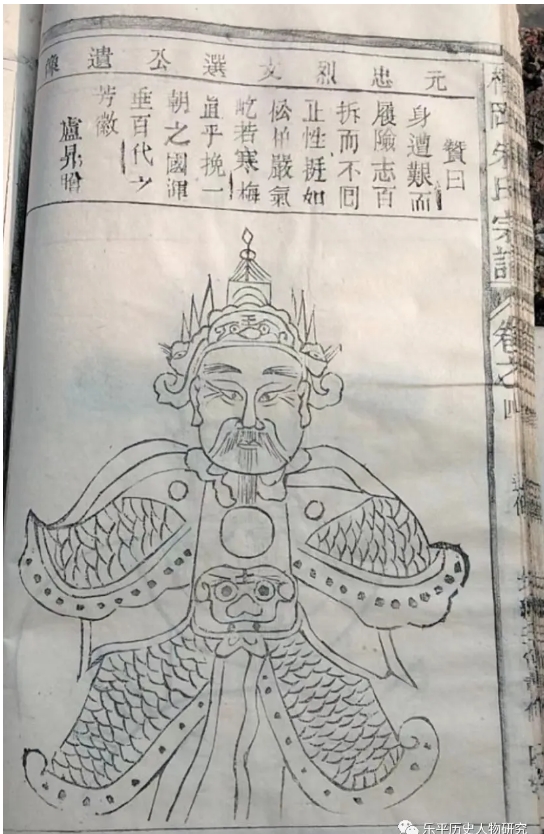 元忠烈文選公遺像
贊曰
身遭艱而
履險志百
拆而不回
止性挺如
松柏嚴氣
屹若寒梅
直乎挽一
朝之國渾
垂百代之
芳徽
盧昇
氏宗譜
卷之四
乐平历史人物研究